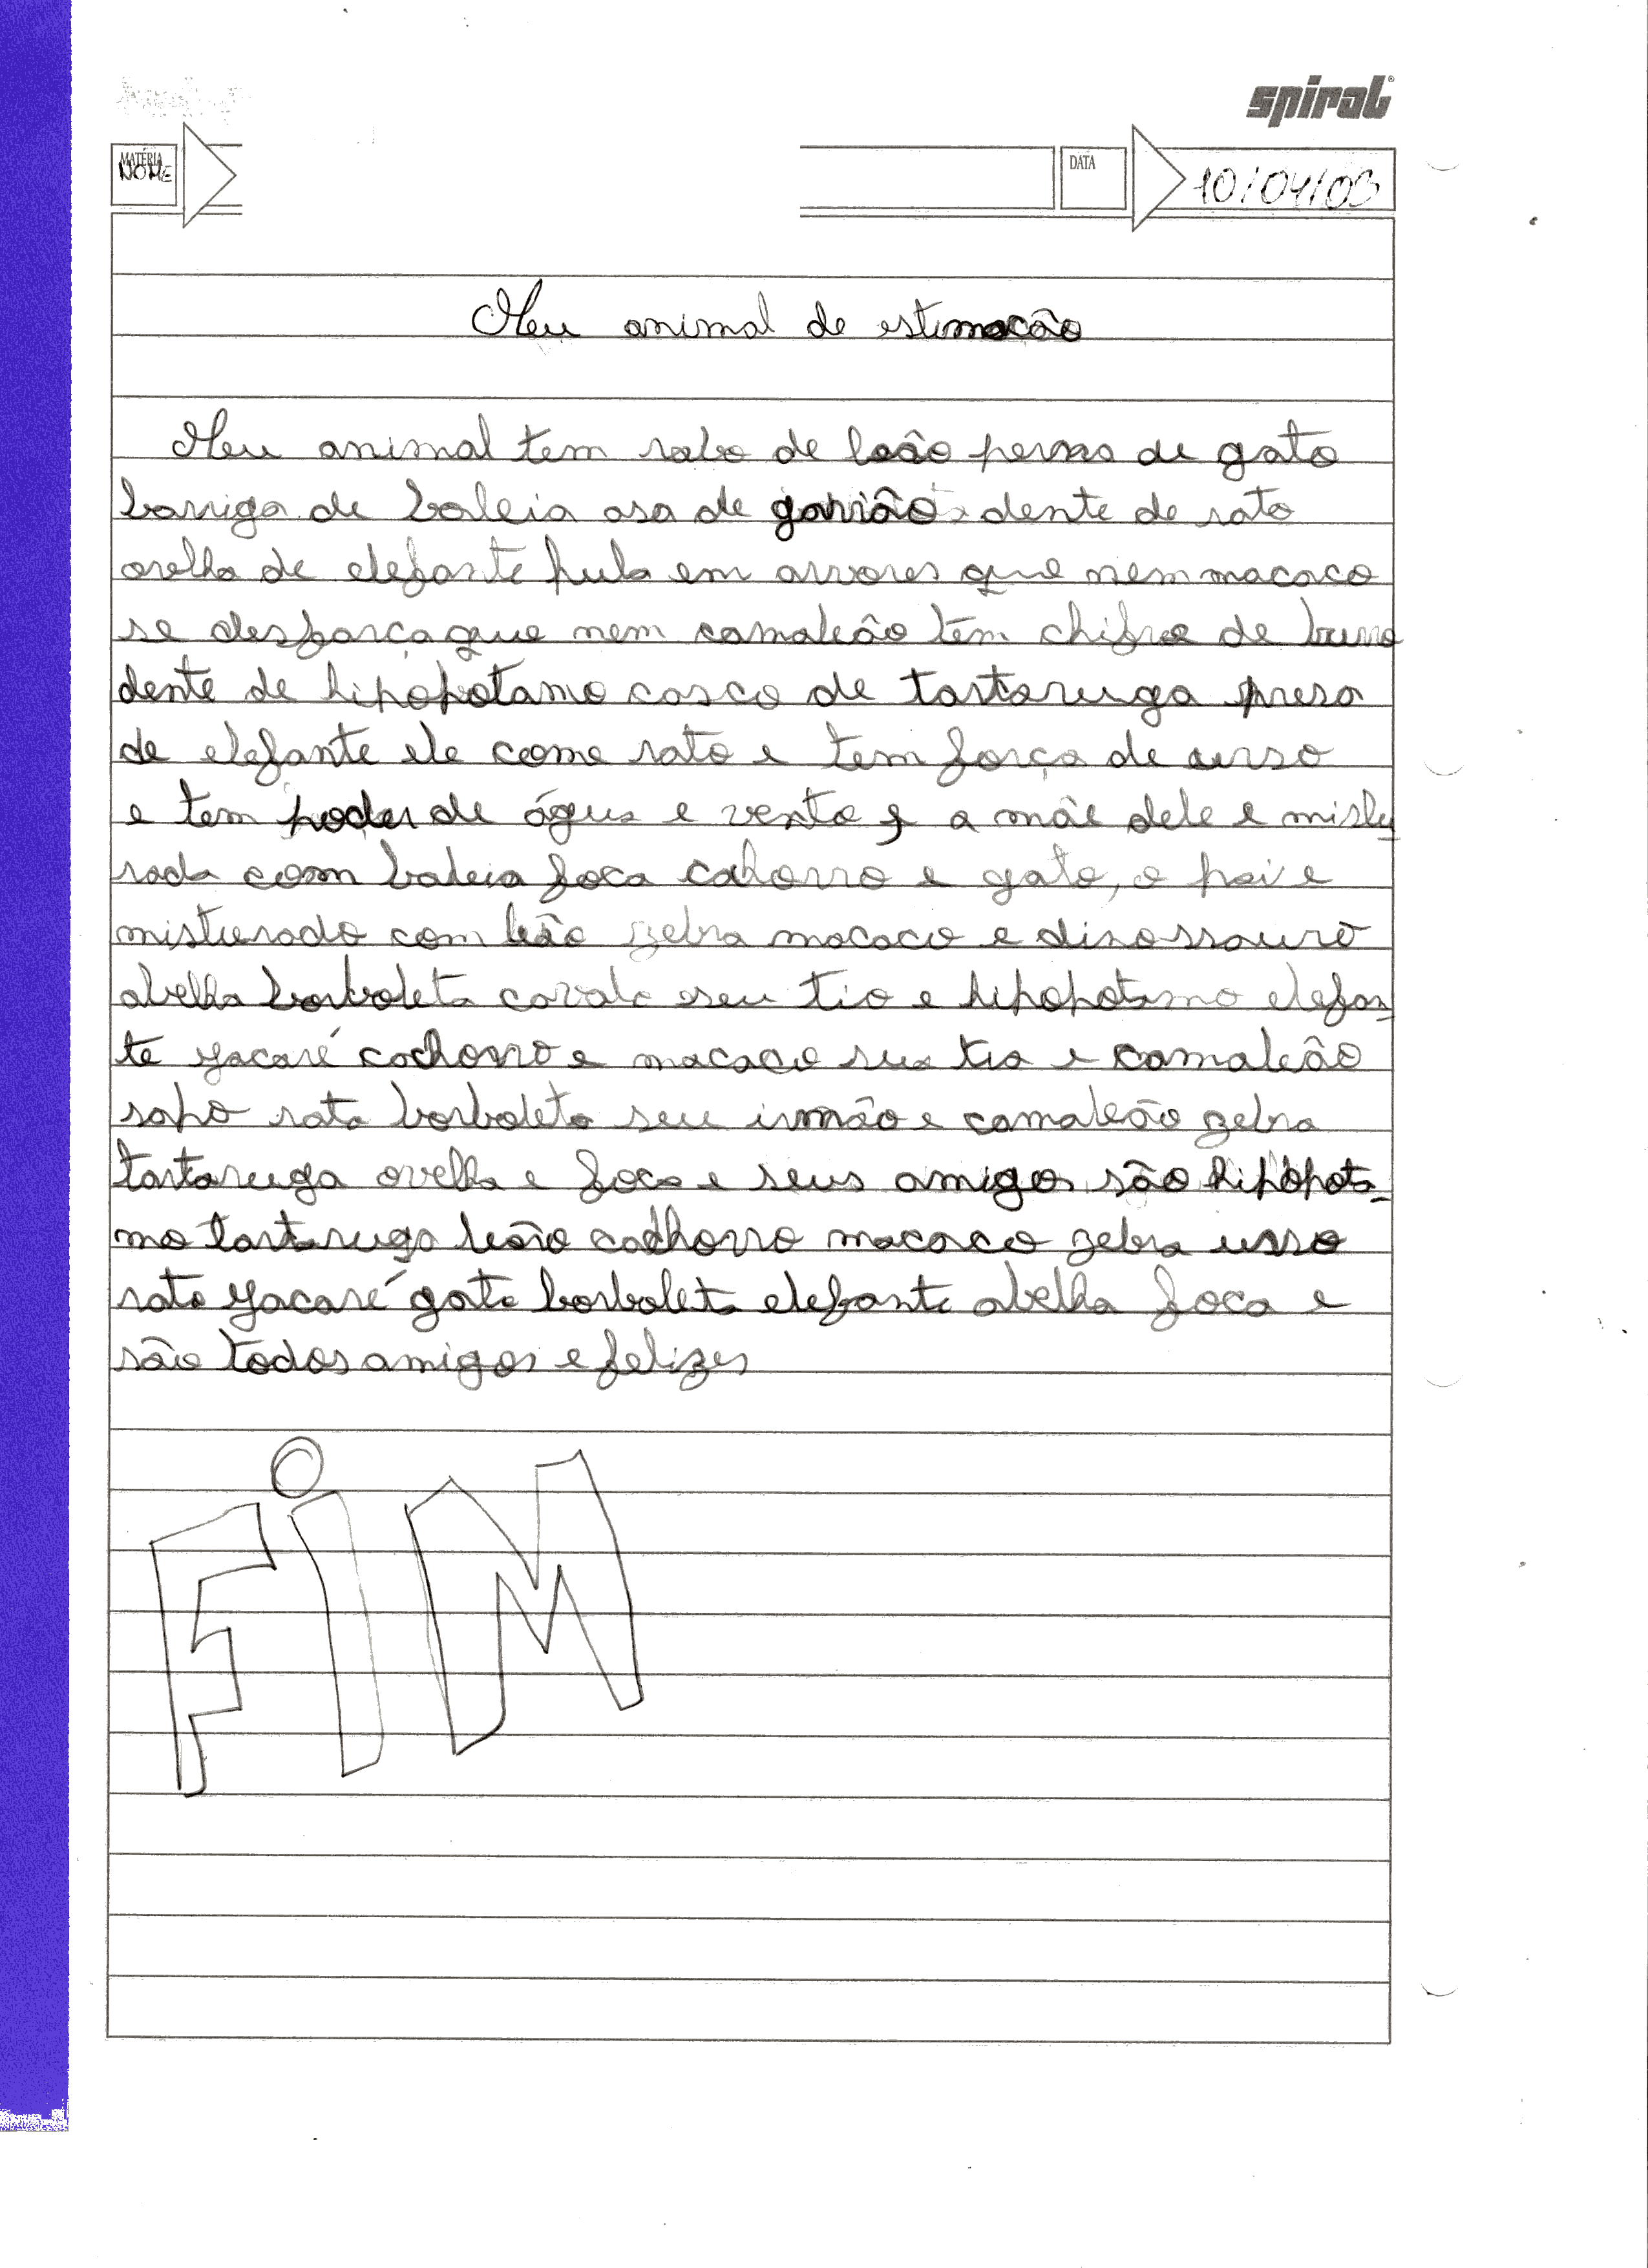 spiral
MATÉRIA
NOME
DATA
10/04/03
Meu animal de estimacão
Meu animal tem rabo de leão pernas de gato
barriga de baleia asa de gavião dente de rato
orelha de elefante pula em arvores que nem macaco
se desfarça que nem camaleão tem chifre de burro
dente de hipopotamo casco de tartaruga presa
de elefante ele come rato e tem força de urso
e tem poder de água e vento e a mãe dele e mistu
rada com baleia foca cahorro e gato, o pai e
misturado com leão zebra macaco e dinossauro
abelha borboleta cavalo seu tio e hipopotamo elefan_
te jacaré cachorro e macaco sua tia e camaleão
sapo rato borboleta seu irmão e camaleão zebra
tartaruga ovelha e foca e seus amigos são hipopota_
mo tartaruga leão cachorro macaco zebra urso
rato jacaré gato borboleta elefante abelha foca e
são todos amigos e felizes
FiM